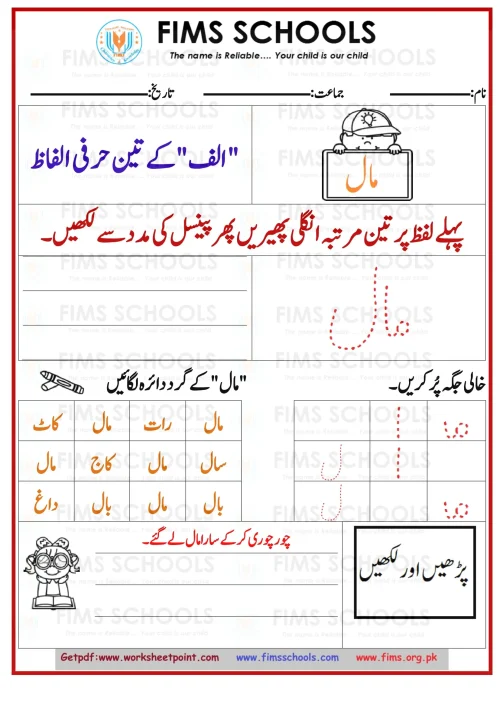 FIMS SCHOOLS
The name is Reliable.... Your child is our child
نام: جماعت: تاریخ:
مال
"الف" کے تین حرفی الفاظ
پہلے لفظ پر تین مرتبہ انگلی پھیریں پھر پینسل کی مدد سے لکھیں۔
مال
خالی جگہ پُر کریں۔
"مال" کے گرد دائرہ لگائیں
مـ ا
ا ل
مـ ل
مال رات مال کاٹ
سال مال کاج مال
بال مال بال داغ
پڑھیں اور لکھیں
چور چوری کر کے سارا مال لے گئے۔
Getpdf:www.worksheetpoint.com www.fimsschools.com www.fims.org.pk